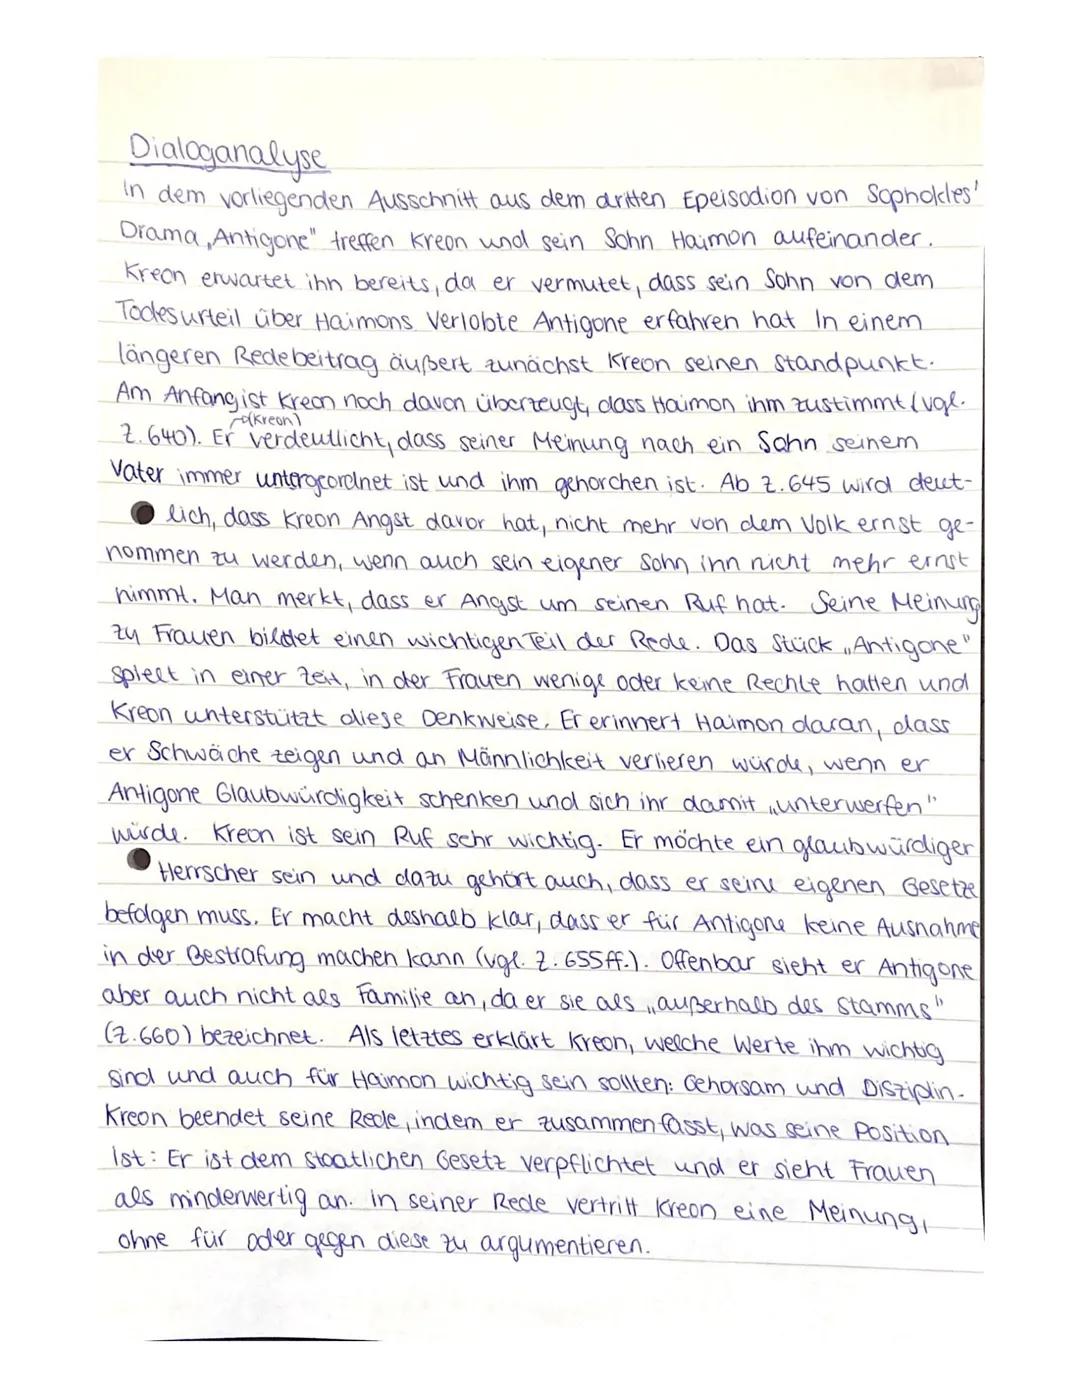 Dialoganalyse
In dem vorliegenden Ausschnitt aus dem dritten Epeisodion von Sophokles'
Drama „Antigone" treffen Kreon und sein Sohn Haimon aufeinander.
Kreon erwartet ihn bereits, da er vermutet, dass sein Sohn von dem
Todesurteil über Haimons Verlobte Antigone erfahren hat In einem
längeren Redebeitrag äußert zunächst Kreon seinen Standpunkt.
Am Anfang ist Kreon noch davon überzeugt, dass Haimon ihm zustimmt (vgl.
(Kreon)
Z. 640). Er verdeutlicht, dass seiner Meinung nach ein Sohn seinem
Vater immer untergeordnet ist und ihm gehorchen ist. Ab Z. 645 wird deut-
lich, dass Kreon Angst davor hat, nicht mehr von dem Volk ernst ge-
nommen zu werden, wenn auch sein eigener Sohn inn nicht mehr ernst
nimmt. Man merkt, dass er Angst um seinen Ruf hat. Seine Meinung
zu Frauen bildet einen wichtigen Teil der Rede. Das Stück „Antigone"
spielt in einer Zeit, in der Frauen wenige oder keine Rechte hatten und
Kreon unterstützt diese Denkweise. Er erinnert Haimon daran, dass
er Schwäche zeigen und an Männlichkeit verlieren würde, wenn er
Antigone Glaubwürdigkeit schenken und sich ihr damit „unterwerfen"
würde. Kreon ist sein Ruf sehr wichtig. Er möchte ein glaubwürdiger
Herrscher sein und dazu gehört auch, dass er seine eigenen Gesetze
befolgen muss. Er macht deshalb klar, dass er für Antigone keine Ausnahme
in der Bestrafung machen kann (vgl. Z. 655ff.). Offenbar sieht er Antigone
aber auch nicht als Familie an, da er sie als „außerhalb des Stamms"
(Z. 660) bezeichnet. Als letztes erklärt Kreon, welche Werte ihm wichtig
sind und auch für Haimon wichtig sein sollten: Gehorsam und Disziplin.
Kreon beendet seine Rede, indem er zusammenfasst, was seine Position
ist: Er ist dem staatlichen Gesetz verpflichtet und er sieht Frauen
als minderwertig an. In seiner Rede vertritt Kreon eine Meinung,
ohne für oder gegen diese zu argumentieren.